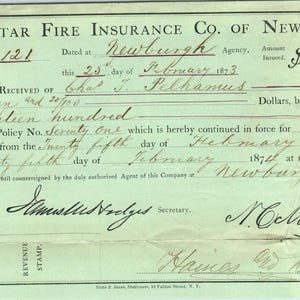 TAR FIRE INSURANCE CO. OF NEW
121 Dated at Newburgh Agency, Amount
this 25th day of February 1873 Insured. $
RECEIVED OF Chas T. Pelhamus
n and 20/100 Dollars, b
teen hundred
Policy No. Seventy One which is hereby continued in force for
from the Twenty fifth day of February
ty fifth day of February 1874 at
until countersigned by the duly authorized Agent of this Company at Newbur
James M Hodges Secretary. N. C. M
REVENUE STAMP.
Haines and
Slote & Janes, Stationers, 93 Fulton Street, N. Y.